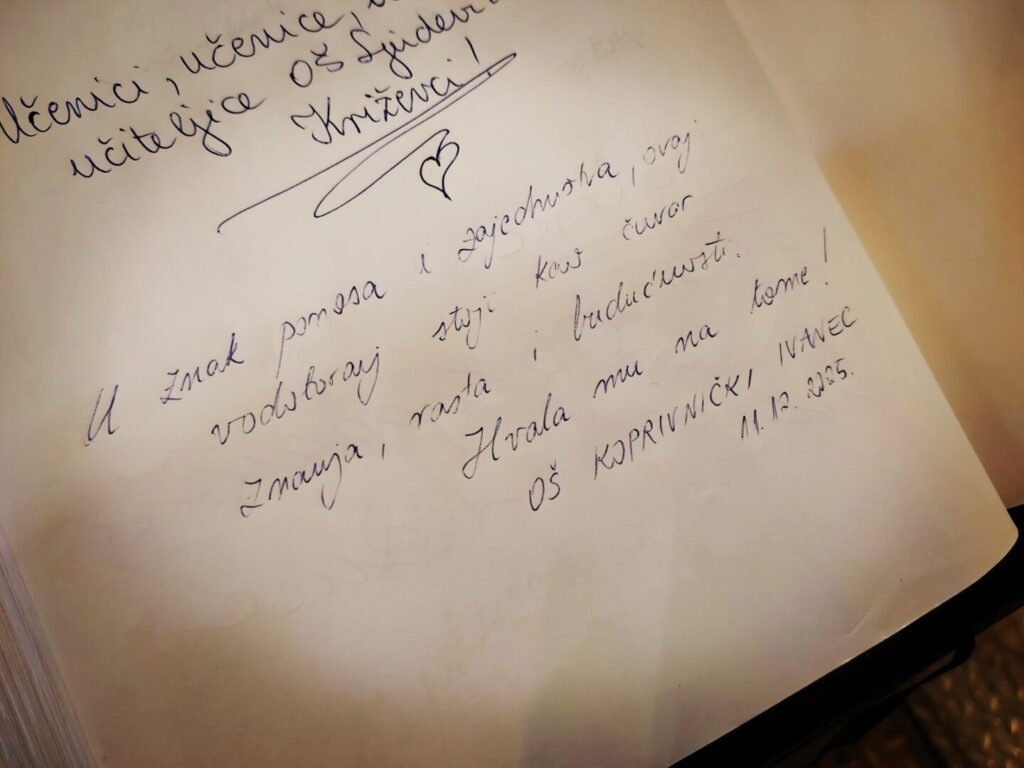 Učenici, učenice,
učiteljice OŠ Ljudevi
Križevci!
U znak ponosa i zajedništva, ovaj
vodotoranj stoji kao čuvar
znanja, rasta i budućnosti.
Hvala mu na tome!
OŠ KOPRIVNIČKI IVANEC
11.12.2025.